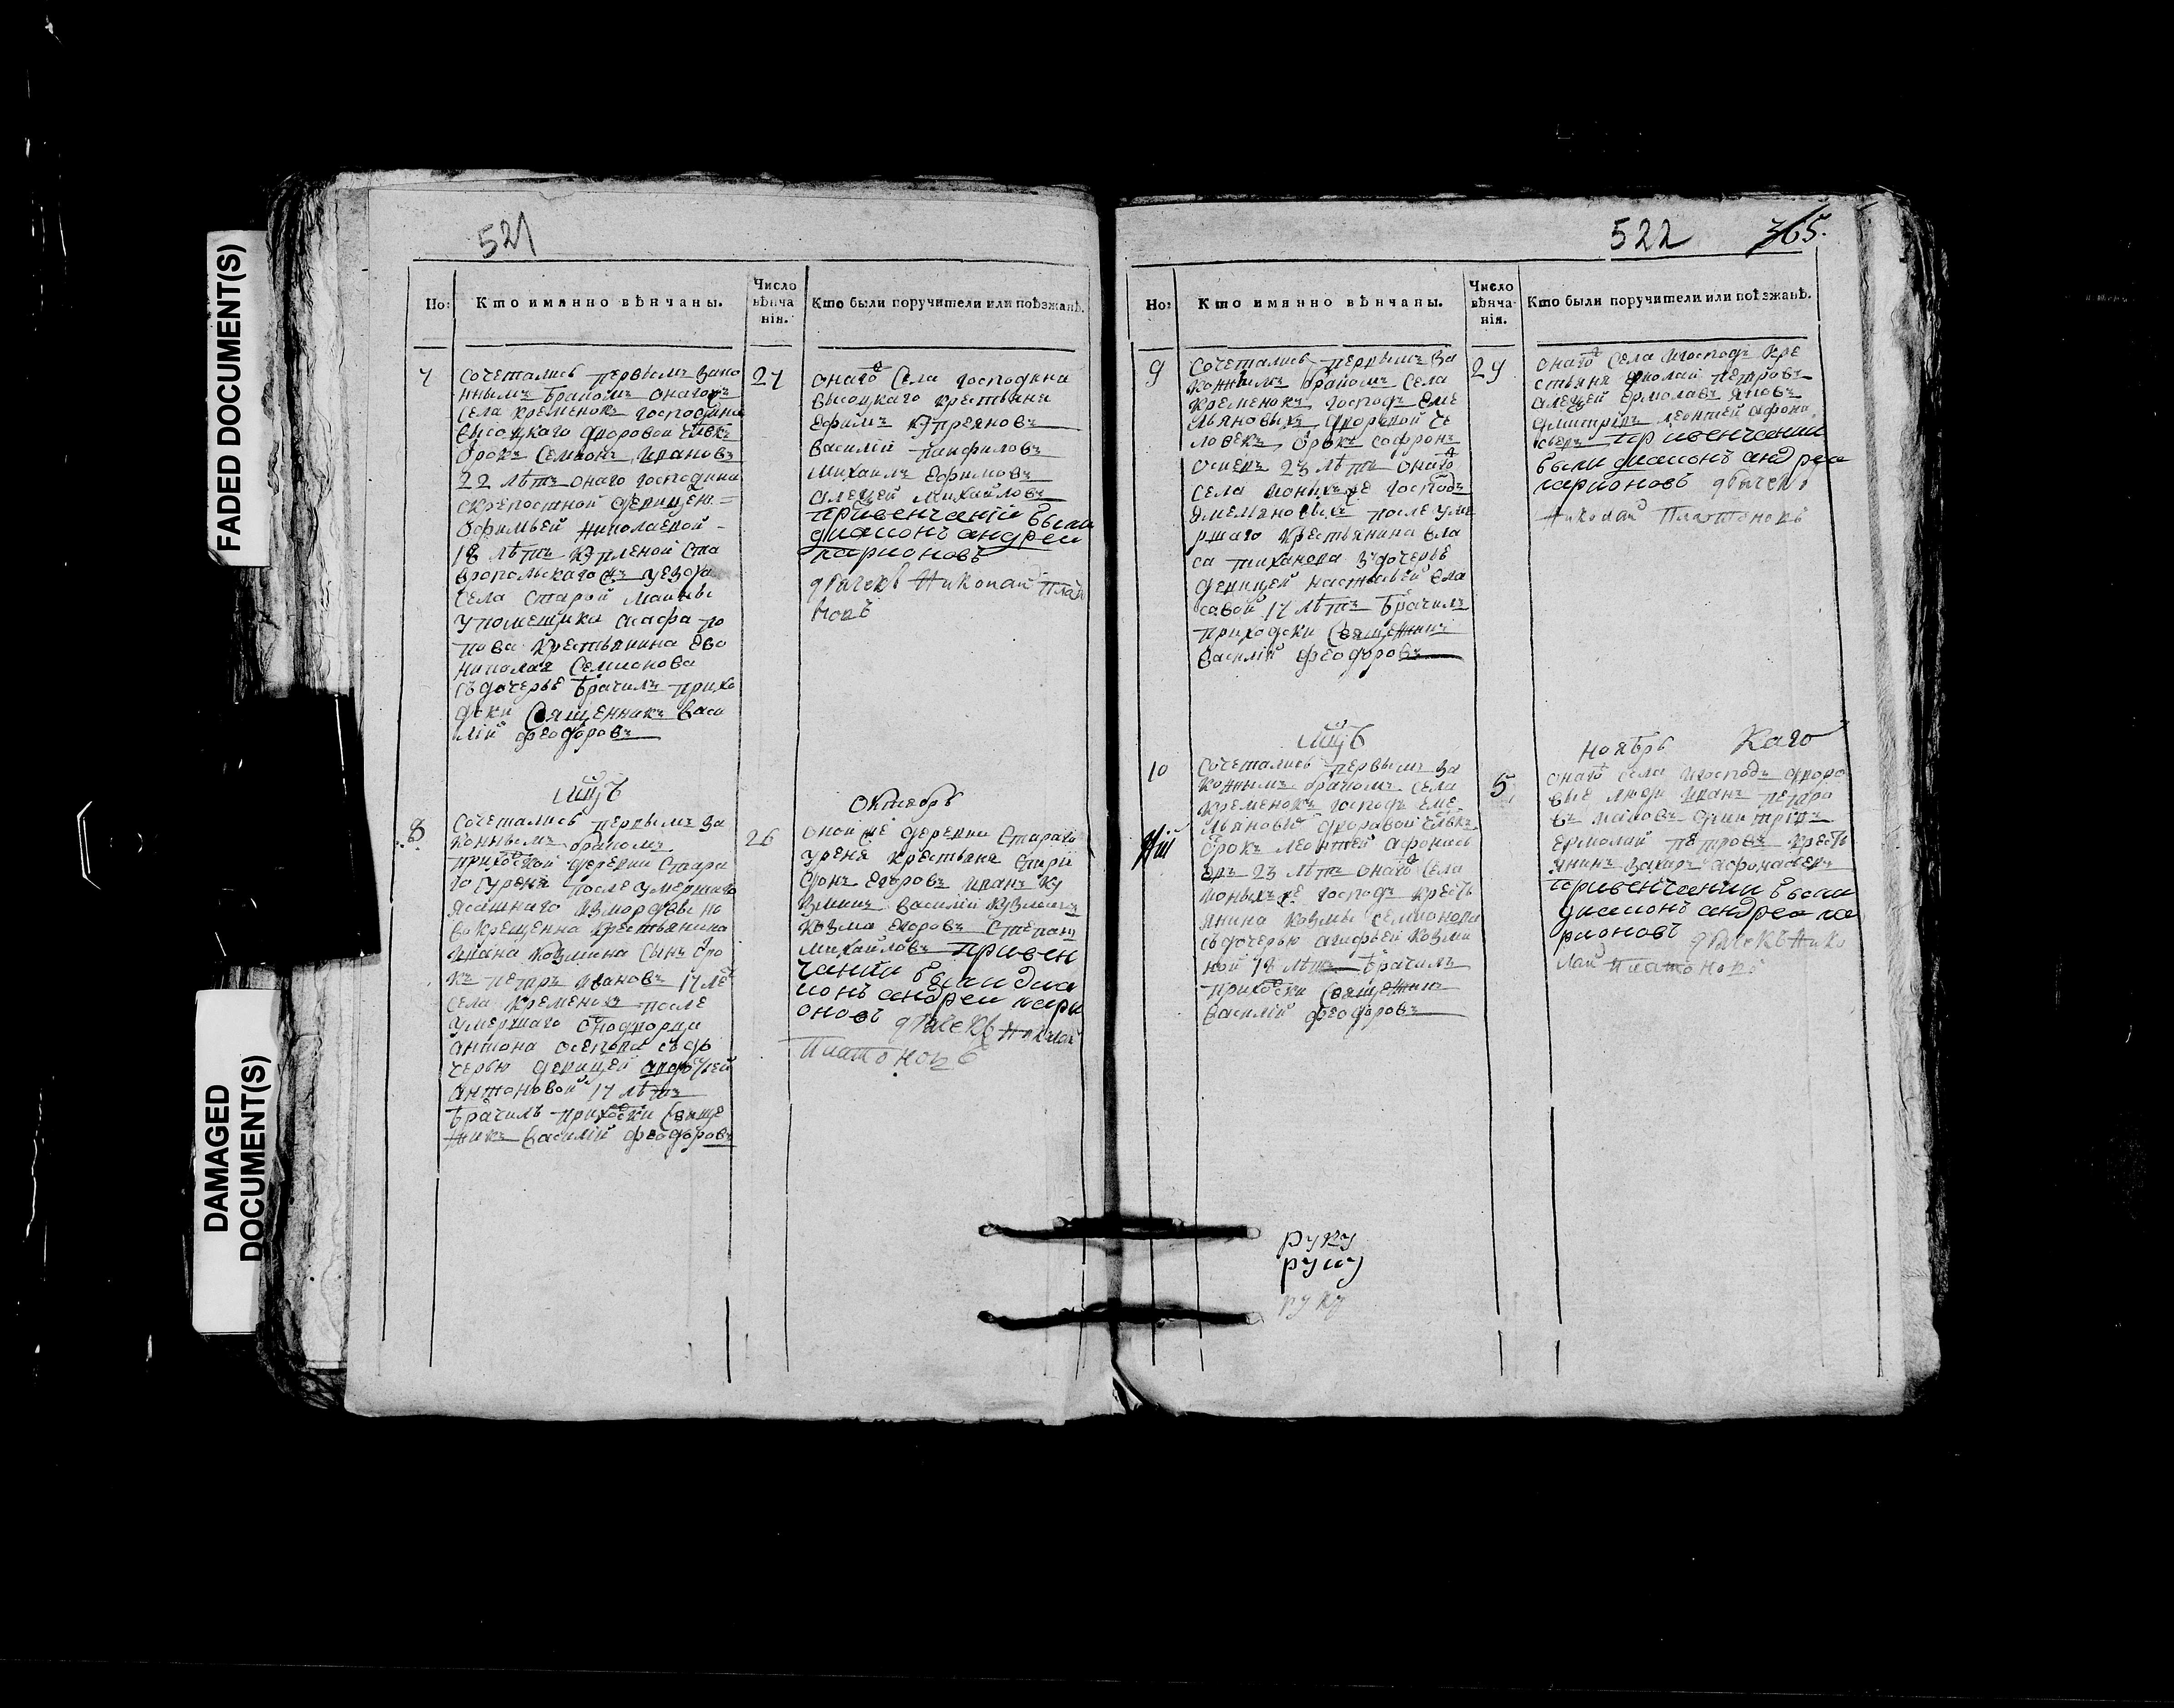 FADED DOCUMENT(S)
DAMAGED
DOCUMENT(S)
521
Но:
Кто имянно вѣнчаны.
Число
вѣнча
нія.
Кто были поручители или поѣзжанѣ.
7
Сочетались первымъ зако
ннымъ бракомъ онагожъ
села кременокъ господина
высоцкаго дворовой члвкъ
отрокъ Семионъ Ивановъ
22 лѣтъ онаго господина
скрепостной девицеи
Офимьей Николаевой
18 лѣтъ купленой ста
вропольскаго уезда
села старой маины
упомещика
крестьянина ево
николая Семионова
съ дочерью брачилъ прихо
дски Священникъ Васи
лій Феодоровъ
27
онаго села господина
высоцкаго крестьяни
Ефимъ Купреяновъ
василій панфиловъ
михаилъ Ефимовъ
алеѯей михайловъ
привенчаніи были
диаконъ андреи
ларионовъ
дьячекъ Николай Плат
новъ
8
Сочетались первымъ за
коннымъ бракомъ
приходской деревни Стара
го уреня после умершаго
ясашнаго измордвы но
вокрещенна крестьянина
ивана козмина сынъ отро
къ петръ ивановъ 17 ле
села кременокъ после
умершаго однодворца
антона осепова съ до
черью девицей
антоновой 17 лѣтъ
брачилъ приходски Свяще
нникъ Василій Феодоровъ
26
Октябрь
оной же деревни Стараго
уреня крестьяня Спири
донъ Егоровъ иванъ ку
зминъ василій кузминъ
козма егоровъ степанъ
михайловъ привен
чании были диа
конъ андреи лари
оновъ дьячекъ Николай
Платоновъ
522 365.
Но:
Кто имянно вѣнчаны.
Число
вѣнча-
нія.
Кто были поручители или поѣзжанѣ.
9
Сочетались первымъ за
коннымъ бракомъ села
кременокъ господъ Еме
льяновыхъ дворовой че
ловекъ отрокъ софронъ
23 лѣтъ онаго
села ионыхже господъ
Эмельяновыхъ после уме
ршаго крестьянина вла
са тиханова здочерье
девицей настасьей вла
савой 17 лѣтъ брачилъ
приходски Священникъ
Василій Феодоровъ
29
онаго села игосподъ кре
стьяня николай петровъ
алеѯей ермолаевъ яковъ
дмитріевъ леонтей афона
сьевъ привенчании
были диаконъ андреи
ларионовъ дьячекъ
Николай Платоновъ
10
Сочетались первымъ за
коннымъ бракомъ села
кременокъ господъ еме
льяновыхъ дворавой члвкъ
отрокъ леонтей афонась
евъ 23 лѣтъ онаго села
ионыхже господъ кресть
янина козмы семионова
съ дочерью агафьей козми
ной 18 лѣтъ брачилъ
приходски Священникъ
Василій Феодоровъ
5
ноябрь Каго
онаго села игосподъ дворо
вые люди иванъ петро
въ яковъ дмитріевъ
ермолай петровъ кресть
янинъ захаръ афонасьевъ
привенчании были
диаконъ андреи ла
рионовъ дьячекъ Нико
лай Платоновъ
руку
руку
руку